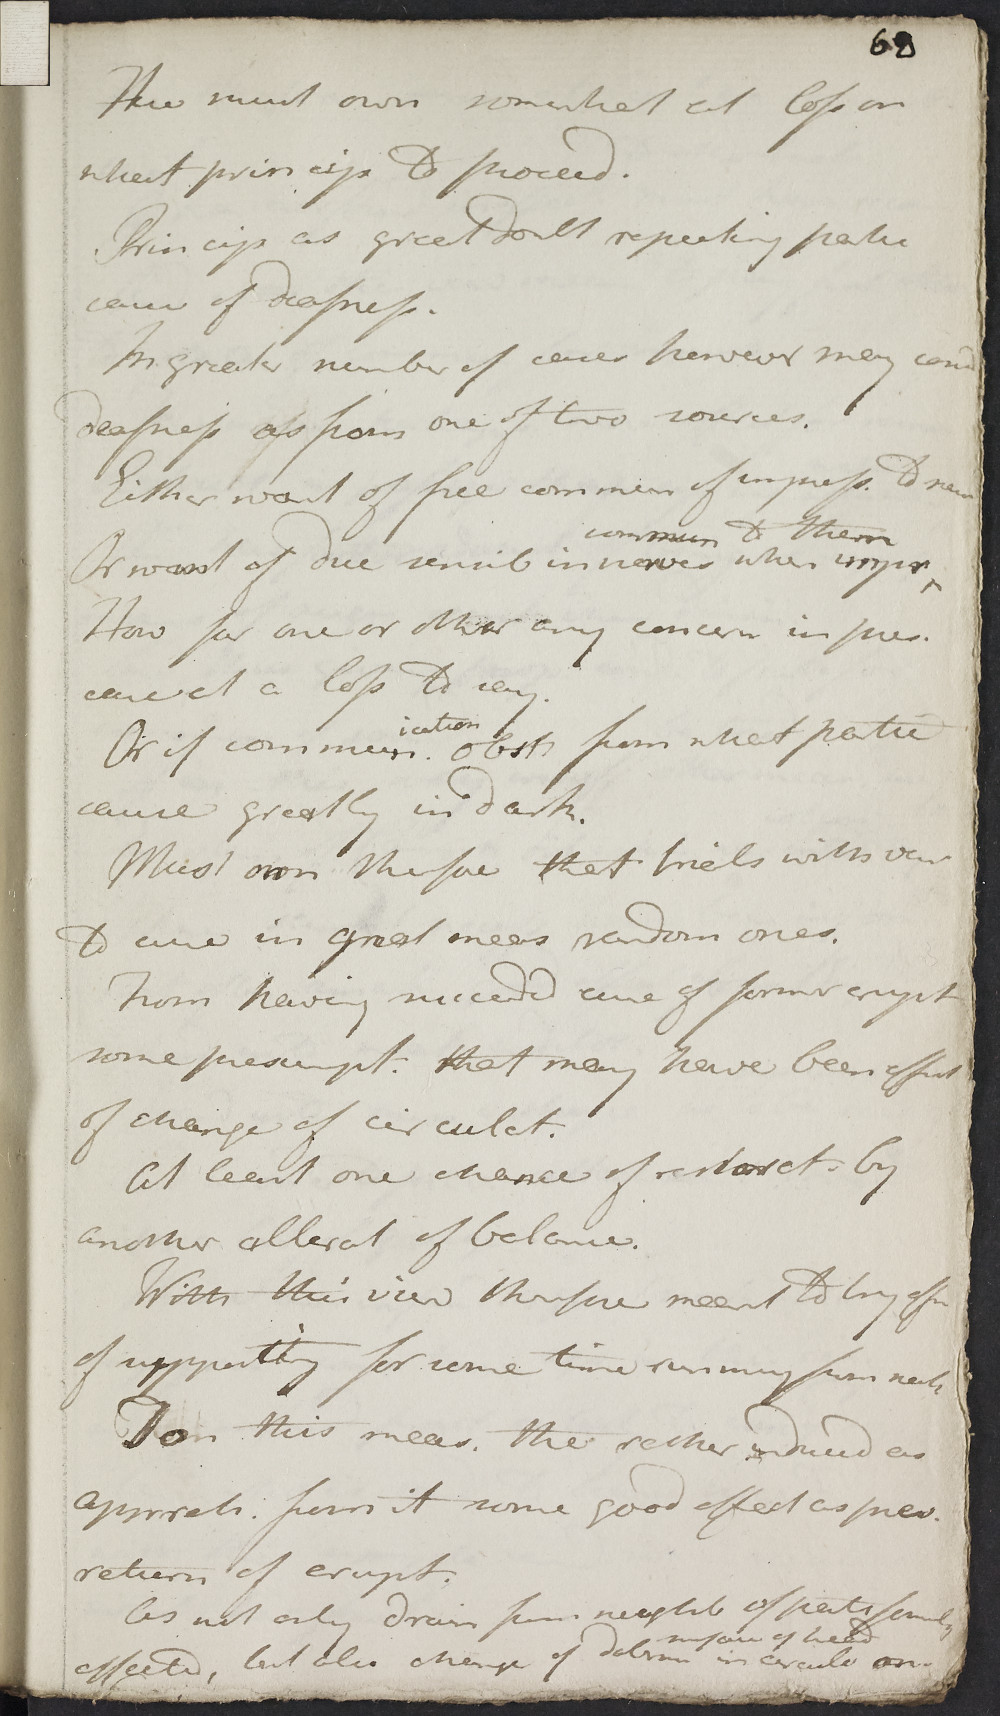 68
Here must own somewhat at loss on
what princip to proceed.
Princip as great doubt respecting partic
cause of deafness.
In greater number of cases however may consid
deafness as from one of two sources.
Either want of free commun of impress. to nerv
commun to them
Or want of due sensib in nerves when impr
How far one or other any concern in pres.
case at a loss to say.
ication
Or if commun. obst from what partic
cause greatly in dark.
Must own therefore that trials with view
to cure in great meas random ones.
From having succeeded cure of former erupt
some presumpt. that may have been effect
of change of circulat.
At least one chance of restorat. by
another alterat of balance.
With this view therefore meant to try effec
of supporting for some time running from neck
To this meas. the rather induced as
apprreh. from it some good effect as prev.
return of erupt.
As not only drain from neighb of parts formerly
surface of head
affected, but also change of determ in circulo on